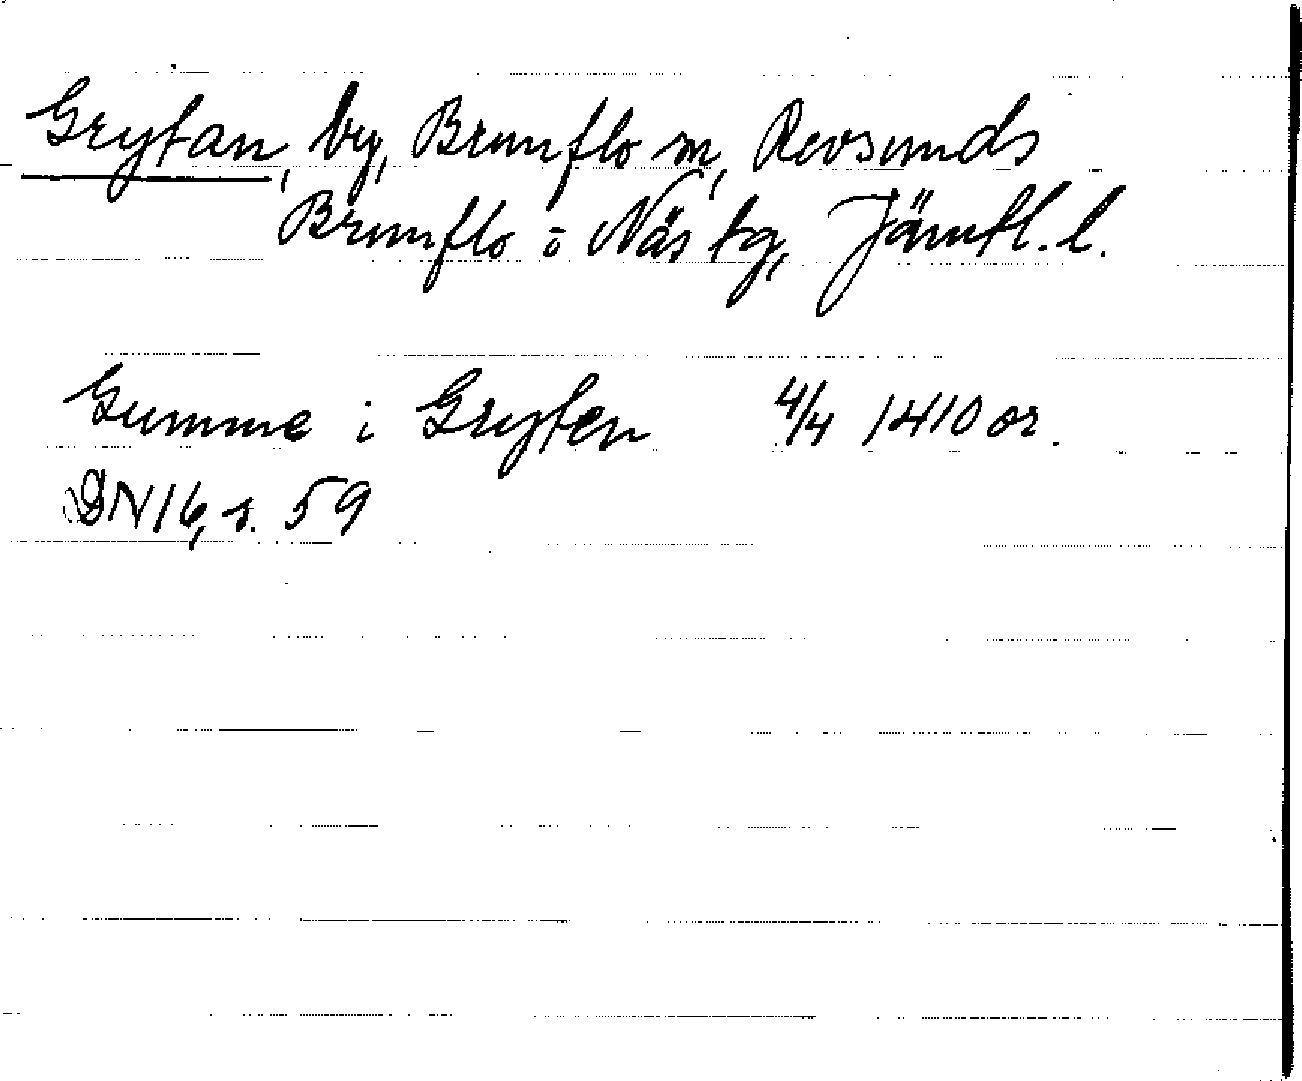 Grytan, by, Brunflo sn, Revsunds
Brunflo o Näs tg, Jämtl. l.
Gumme i Gryten 4/4 1410 or.
DN 16, s. 59